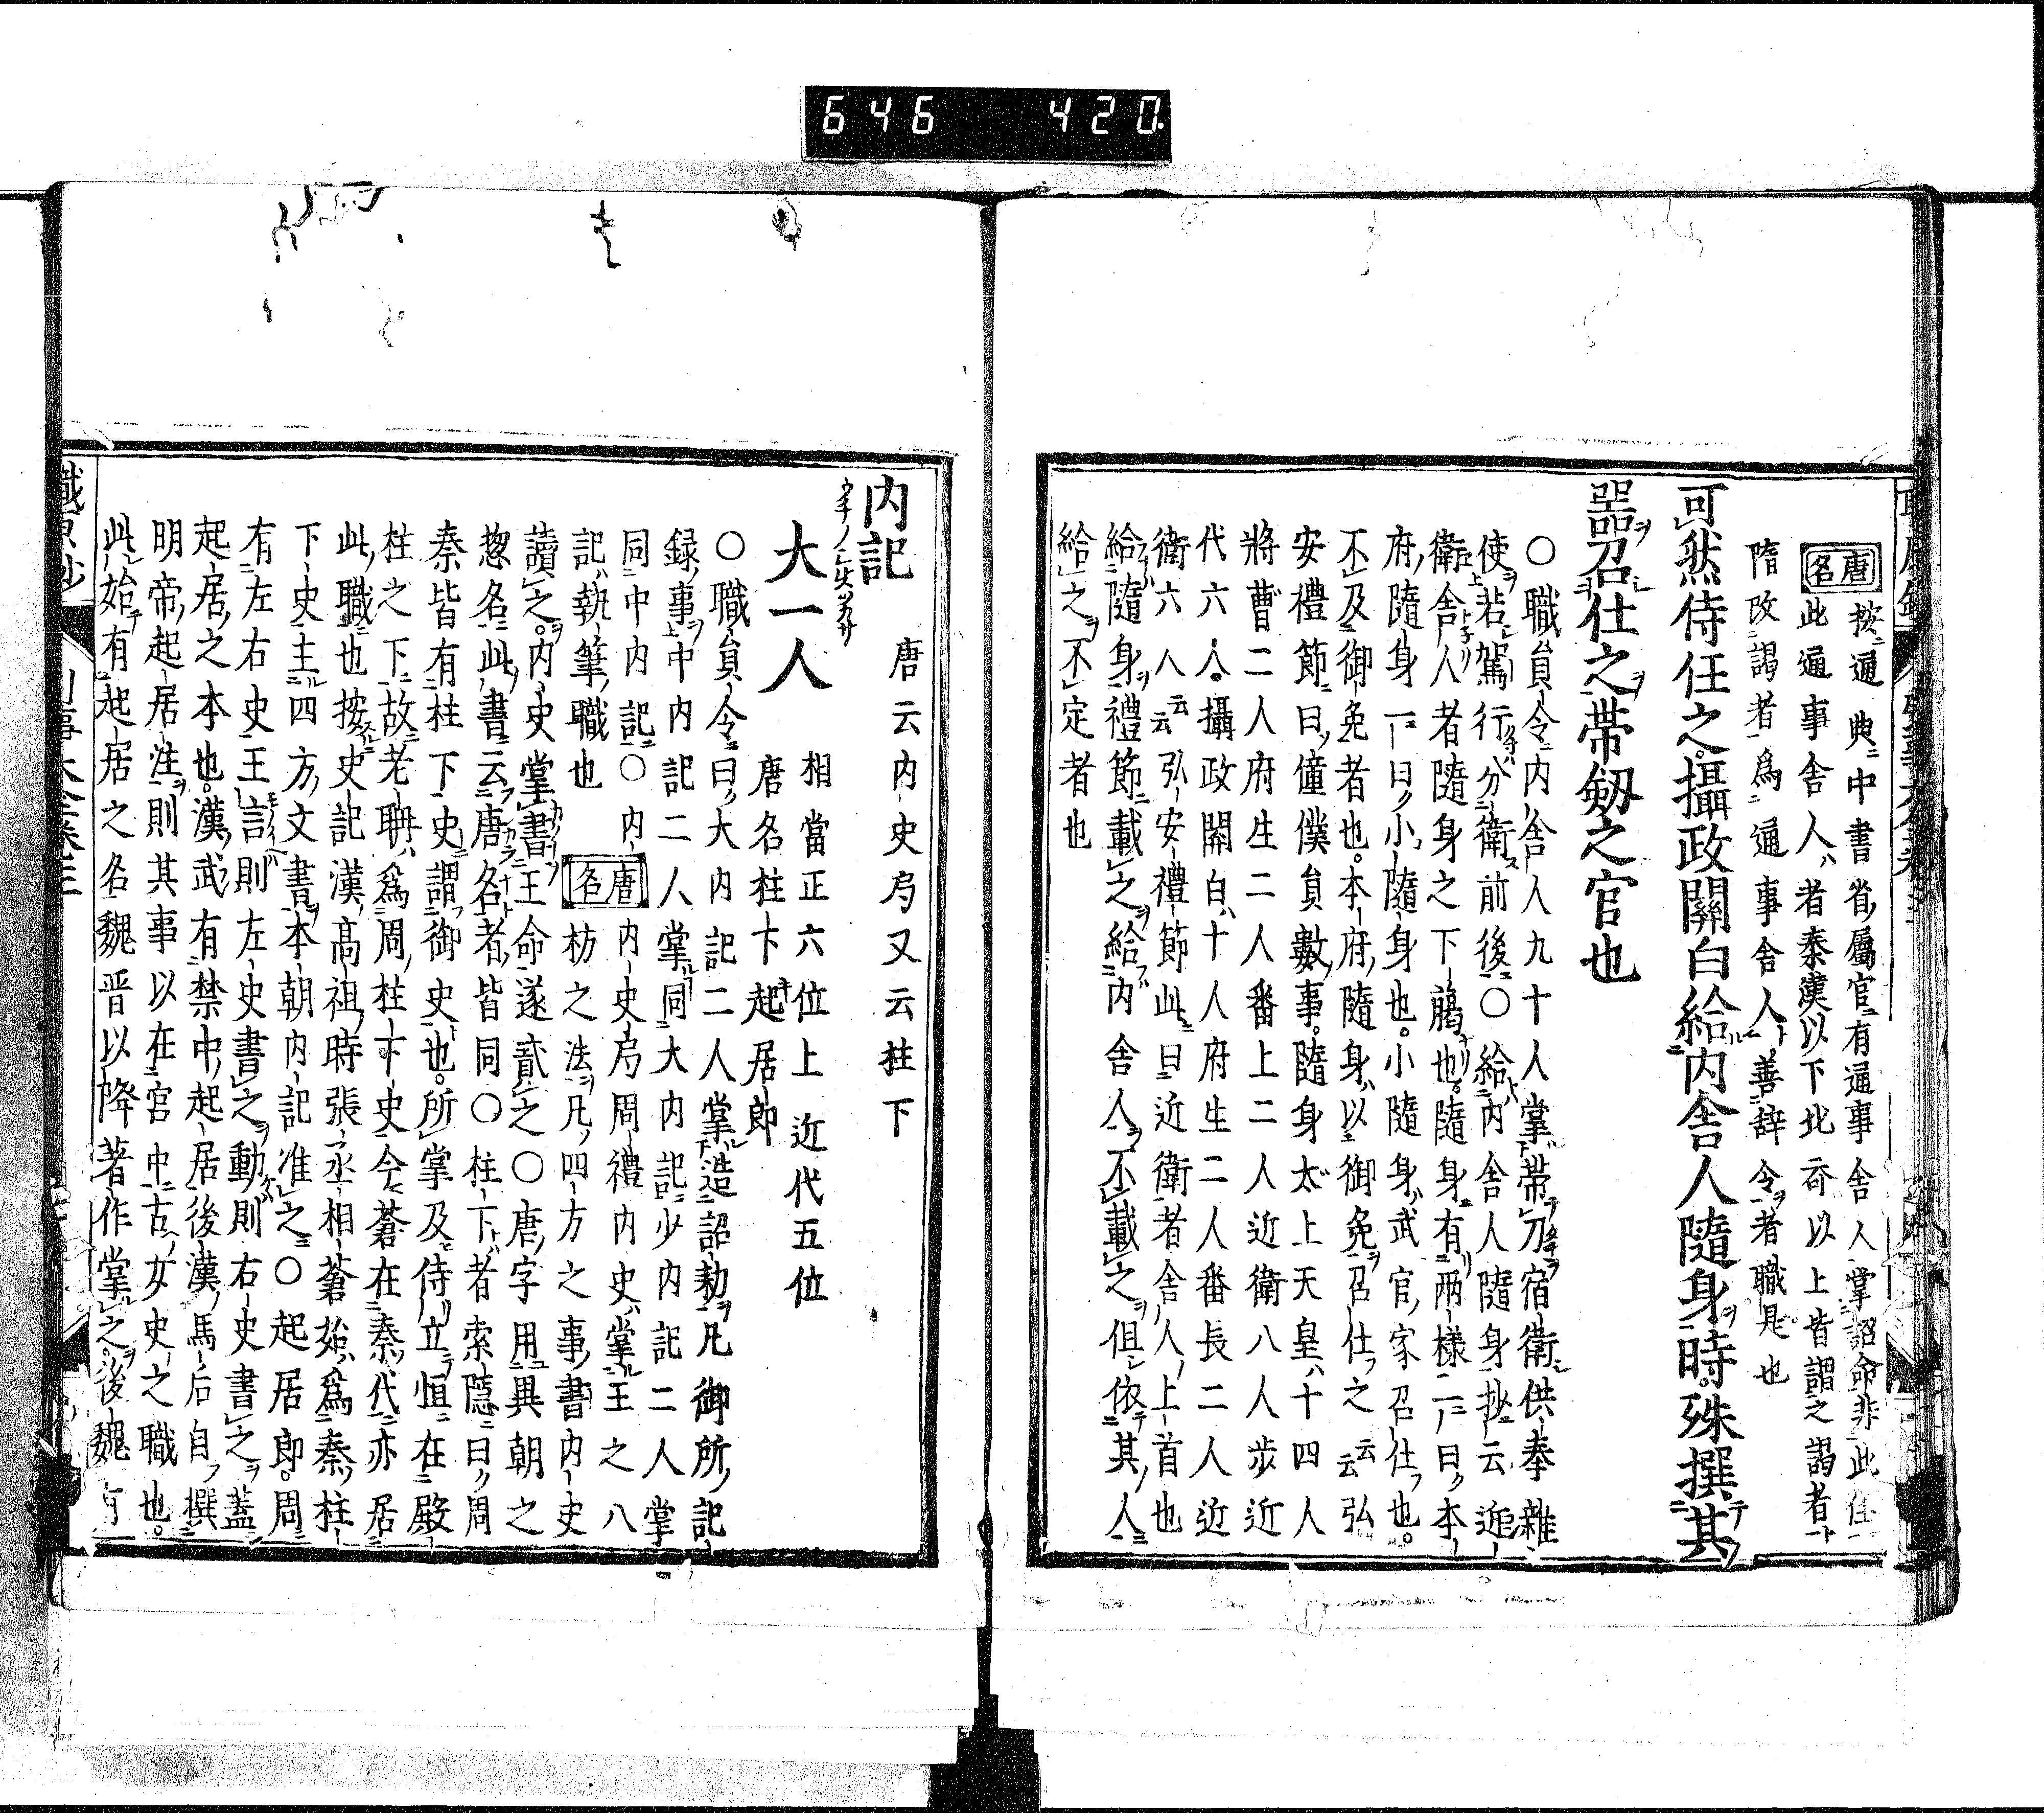 646 420.
唐名 按通典中書省屬官有通事舍人掌詔命非此任
此通事舍人者秦漢以下北斉以上皆謂之謁者
隋改謁者爲通事舍人善辞令者職是也
可然侍任之攝政關白給内舍人隨身時殊撰其
器召仕之帶劔之官也
○職員令内舍人九十人掌帶刀宿衛供奉雜
使若駕行分衛前後○給内舍人隨身抄云近
衛舍人者隨身之下﨟也隨身有兩様二一曰本
府隨身一曰小隨身也小隨身武官家召仕也
不及御免者也本府隨身以御免召仕之云云弘
安禮節曰僮僕員數事隨身太上天皇十四人
將曹二人府生二人番上二人近衛八人歩近
代六人攝政關白十人府生二人番長二人近
衛六人云云弘安禮節此曰近衛者舍人上首也
給隨身禮節載之給内舍人不載之但依其人
給之不定者也
内記 唐云内史局又云柱下
大一人 相當正六位上 近代五位
唐名柱下起居郎
○職員令曰大内記二人掌造詔勅凡御所記
録事中内記二人掌同大内記少内記二人掌
同中内記○内 唐名 内史局周禮内史掌王之八
記執筆職也 枋之法凡四方之事書内史
讀之内史掌書王命遂貳之○唐字用異朝之
惣名此書云唐名者皆同○柱下者索隱曰周
秦皆有柱下史謂御史也所掌及侍立恒在殿
柱之下故老聃爲周柱下史今蒼在秦代亦居
此職也按史記漢髙祖時張丞相蒼始爲秦柱
下史主四方文書本朝内記准之○起居郎周
有左右史王言則左史書之動則右史書之蓋
起居之本也漢武有禁中起居後漢馬后自撰
明帝起居注則其事以在宮中古女史之職也
此始有起居之名魏晋以降著作掌之後魏